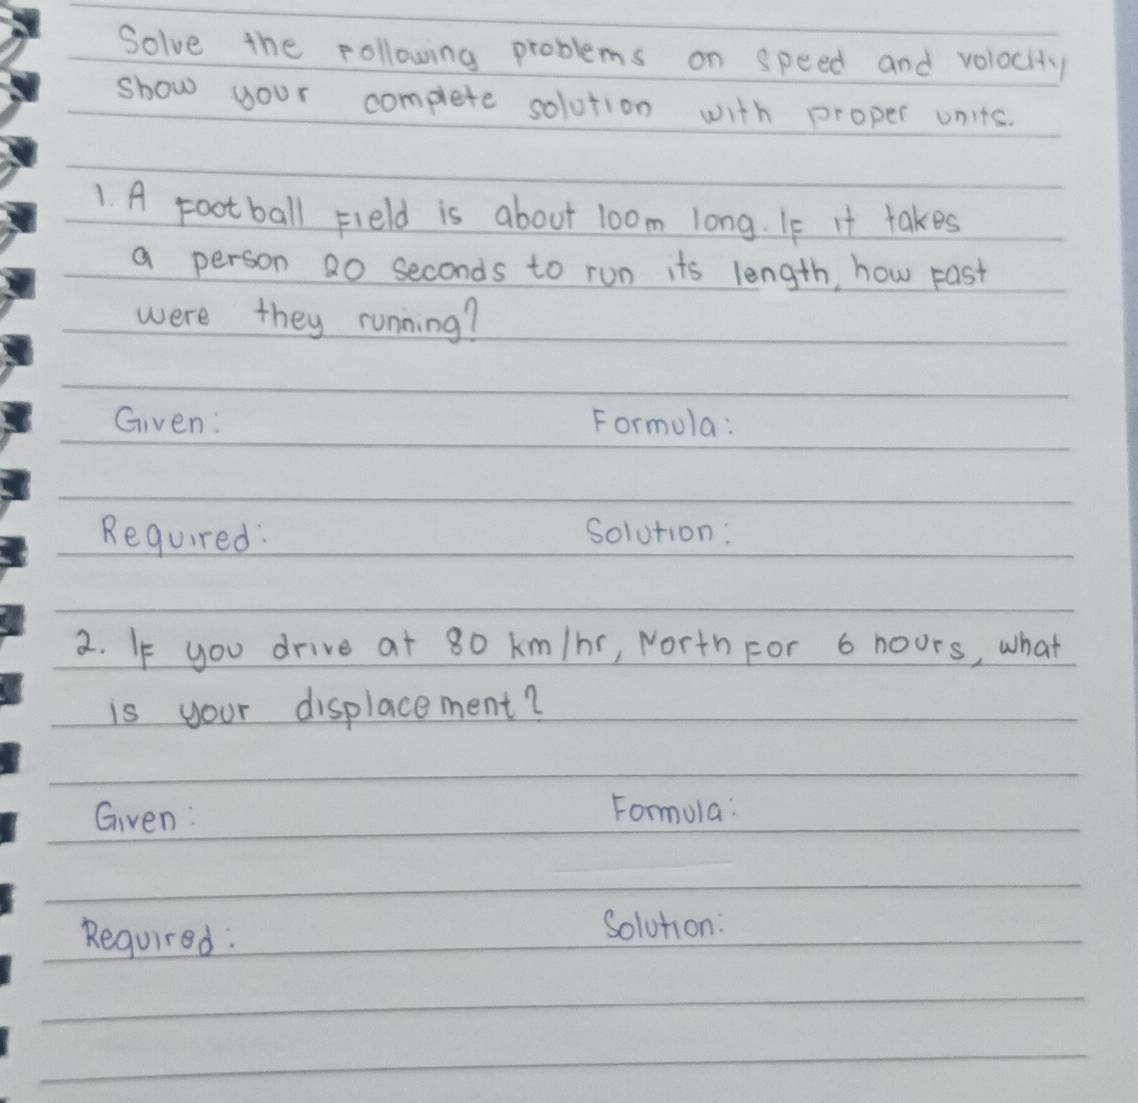 Solve the following problems on speed and volocity
show your complete solution with proper units.
1. A Football Field is about 100m long. If it takes
a person 20 seconds to run its length, how fast
were they running?
Given: Formula:
Required: Solution:
2. If you drive at 80 km/hr, North For 6 hours, what
is your displacement?
Given: Formula:
Required: Solution: